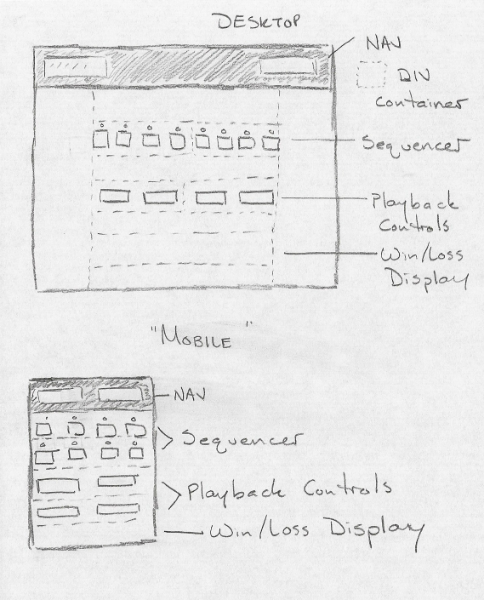 DESKTOP
NAV
DIV
Container
Sequencer
Playback
Controls
Win/Loss
Display
"MOBILE"
NAV
Sequencer
Playback Controls
Win/Loss Display